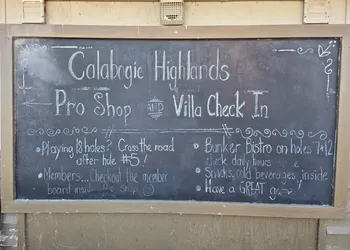 Calabogie Highlands
Pro Shop AND Villa Check In
• Playing 18 holes? Cross the road
after hole #5!
• Members... Checkout the member
board inside Pro Shop
• Bunker Bistro on holes 7+12
check daily hours
• Snacks, cold beverages inside
• Have a GREAT